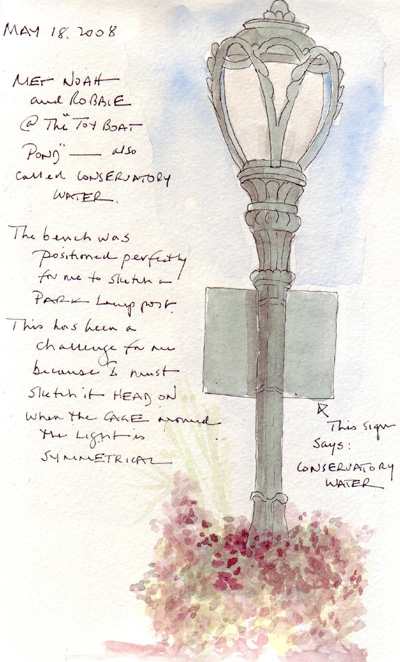 MAY 18. 2008
MET NOAH
and ROBBIE
@ The "TOY BOAT
POND" — also
called CONSERVATORY
WATER.
The bench was
positioned perfectly
for me to sketch a
PARK Lamp post.
This has been a
challenge for me
because I must
sketch it HEAD ON
when the CAGE around
the Light is
SYMMETRICAL
This sign
says:
CONSERVATORY
WATER